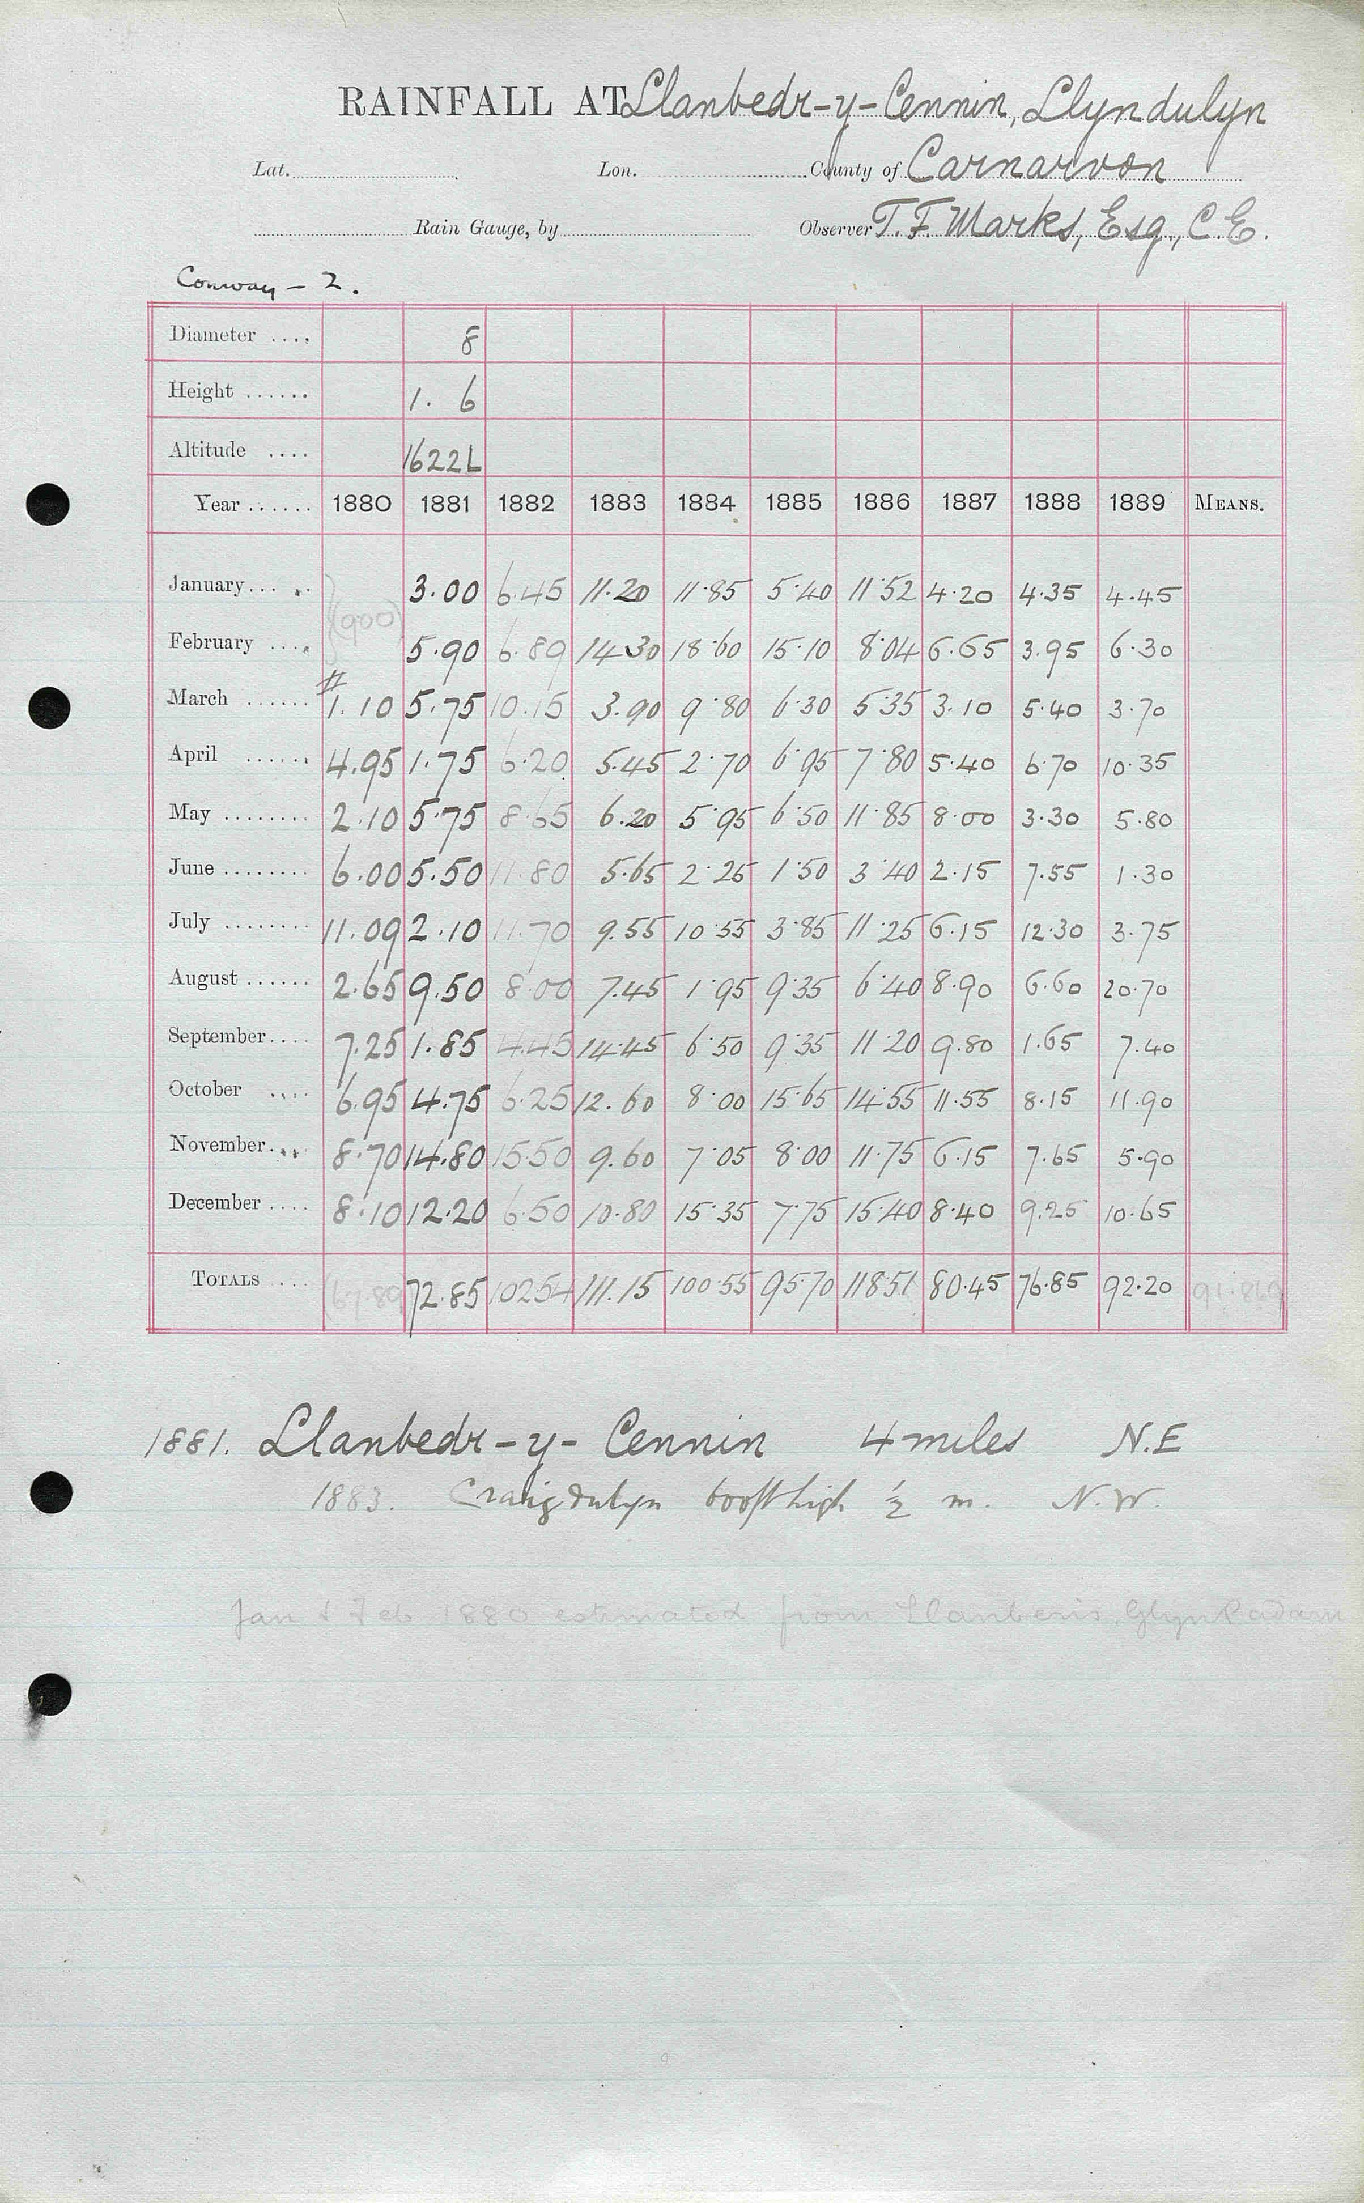 RAINFALL AT Llanbedr-y-Cennin, Llyn dulyn
Lat. Lon. County of Carnarvon
Rain Gauge, by Observer T. F. Marks, Esq., C.E.
Conway - 2.
Diameter .... 8
Height ...... 1. 6
Altitude .... 1622L
Year ...... 1880 1881 1882 1883 1884 1885 1886 1887 1888 1889 MEANS.
January.... 3.00 6.45 11.20 11.85 5.40 11.52 4.20 4.35 4.45
(900)
February .... 5.90 6.89 14.30 18.60 15.10 8.04 6.65 3.95 6.30
March ...... 1.10 5.75 10.15 3.90 9.80 6.30 5.35 3.10 5.40 3.70
April ...... 4.95 1.75 6.20 5.45 2.70 6.95 7.80 5.40 6.70 10.35
May ........ 2.10 5.75 8.65 6.20 5.95 6.50 11.85 8.00 3.30 5.80
June ........ 6.00 5.50 11.80 5.65 2.25 1.50 3.40 2.15 7.55 1.30
July ........ 11.09 2.10 11.70 9.55 10.55 3.85 11.25 6.15 12.30 3.75
August ...... 2.65 9.50 8.00 7.45 1.95 9.35 6.40 8.90 6.60 20.70
September.... 7.25 1.85 4.45 14.45 6.50 9.35 11.20 9.80 1.65 7.40
October .... 6.95 4.75 6.25 12.60 8.00 15.65 14.55 11.55 8.15 11.90
November.... 8.70 14.80 15.50 9.60 7.05 8.00 11.75 6.15 7.65 5.90
December .... 8.10 12.20 6.50 10.80 15.35 7.75 15.40 8.40 9.25 10.65
TOTALS .... (67.89) 72.85 102.54 111.15 100.55 95.70 118.51 80.45 76.85 92.20 91.869
1881. Llanbedr-y-Cennin 4 miles N.E
1883. Craig dulyn 600ft high ½ m. N.W.
Jan & Feb 1880 estimated from Llanberis, Glyn Padarn